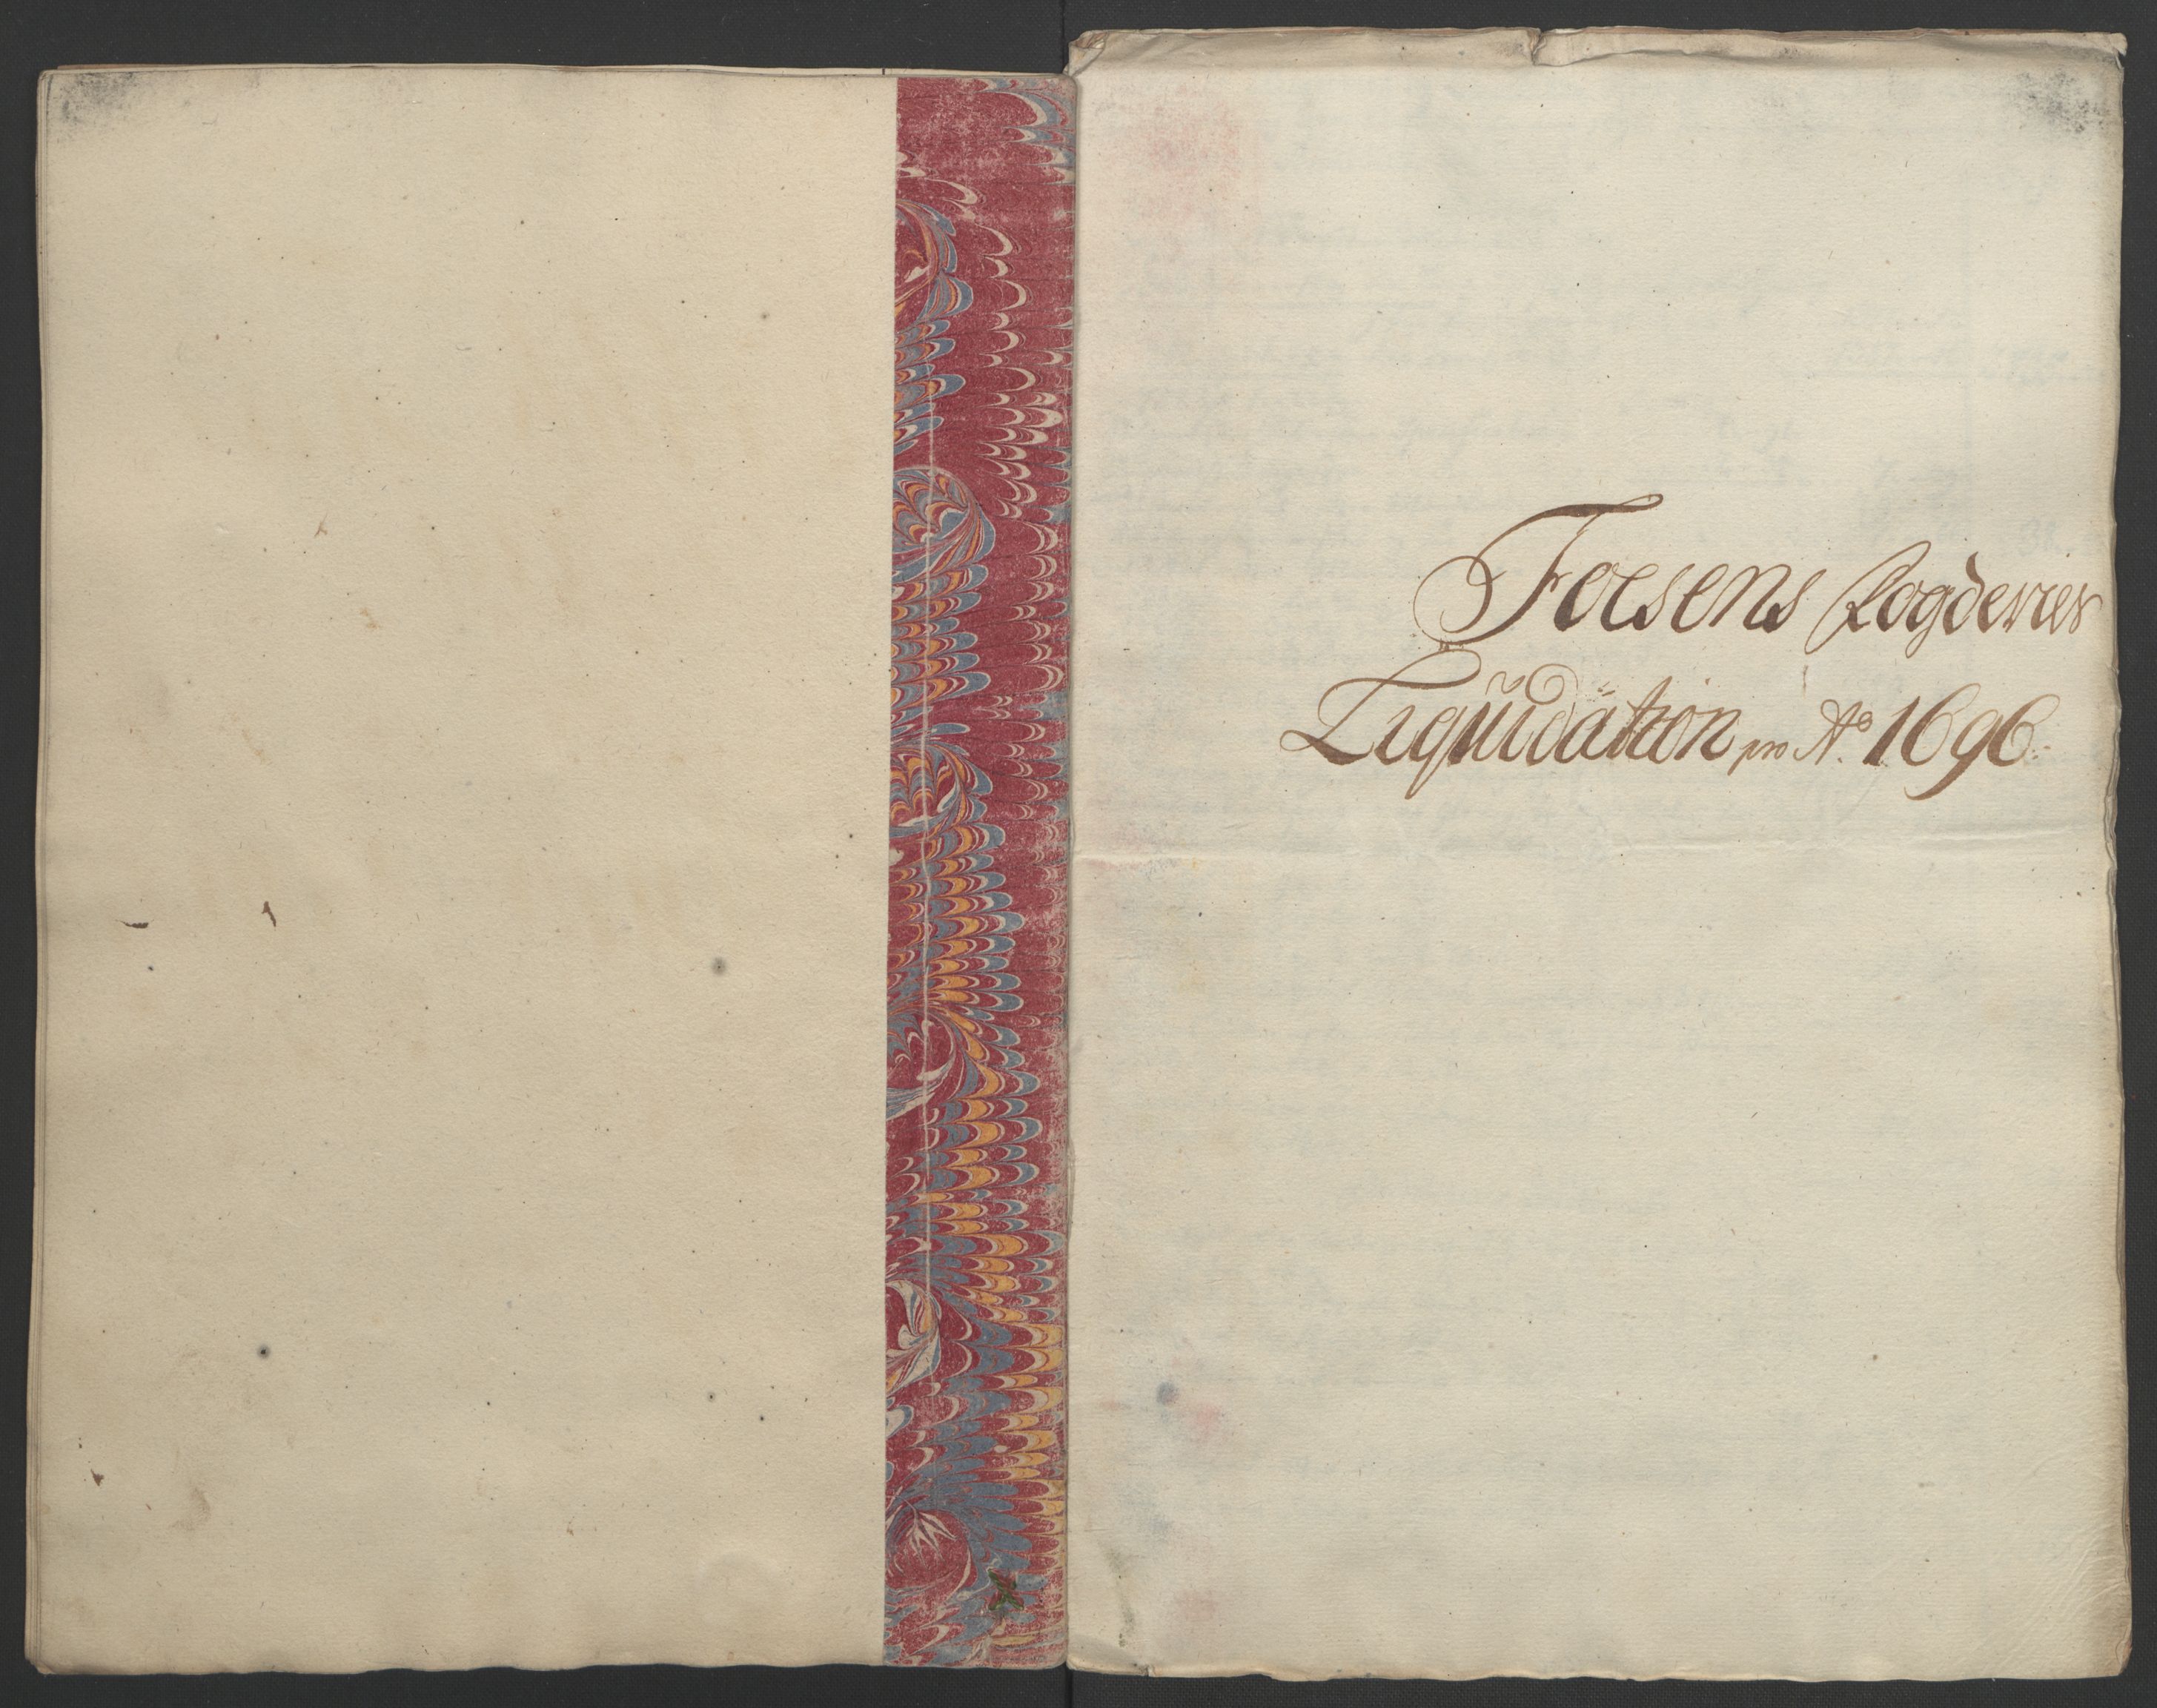 Foesens Fogderies
Liquidation pro Ao. 1696